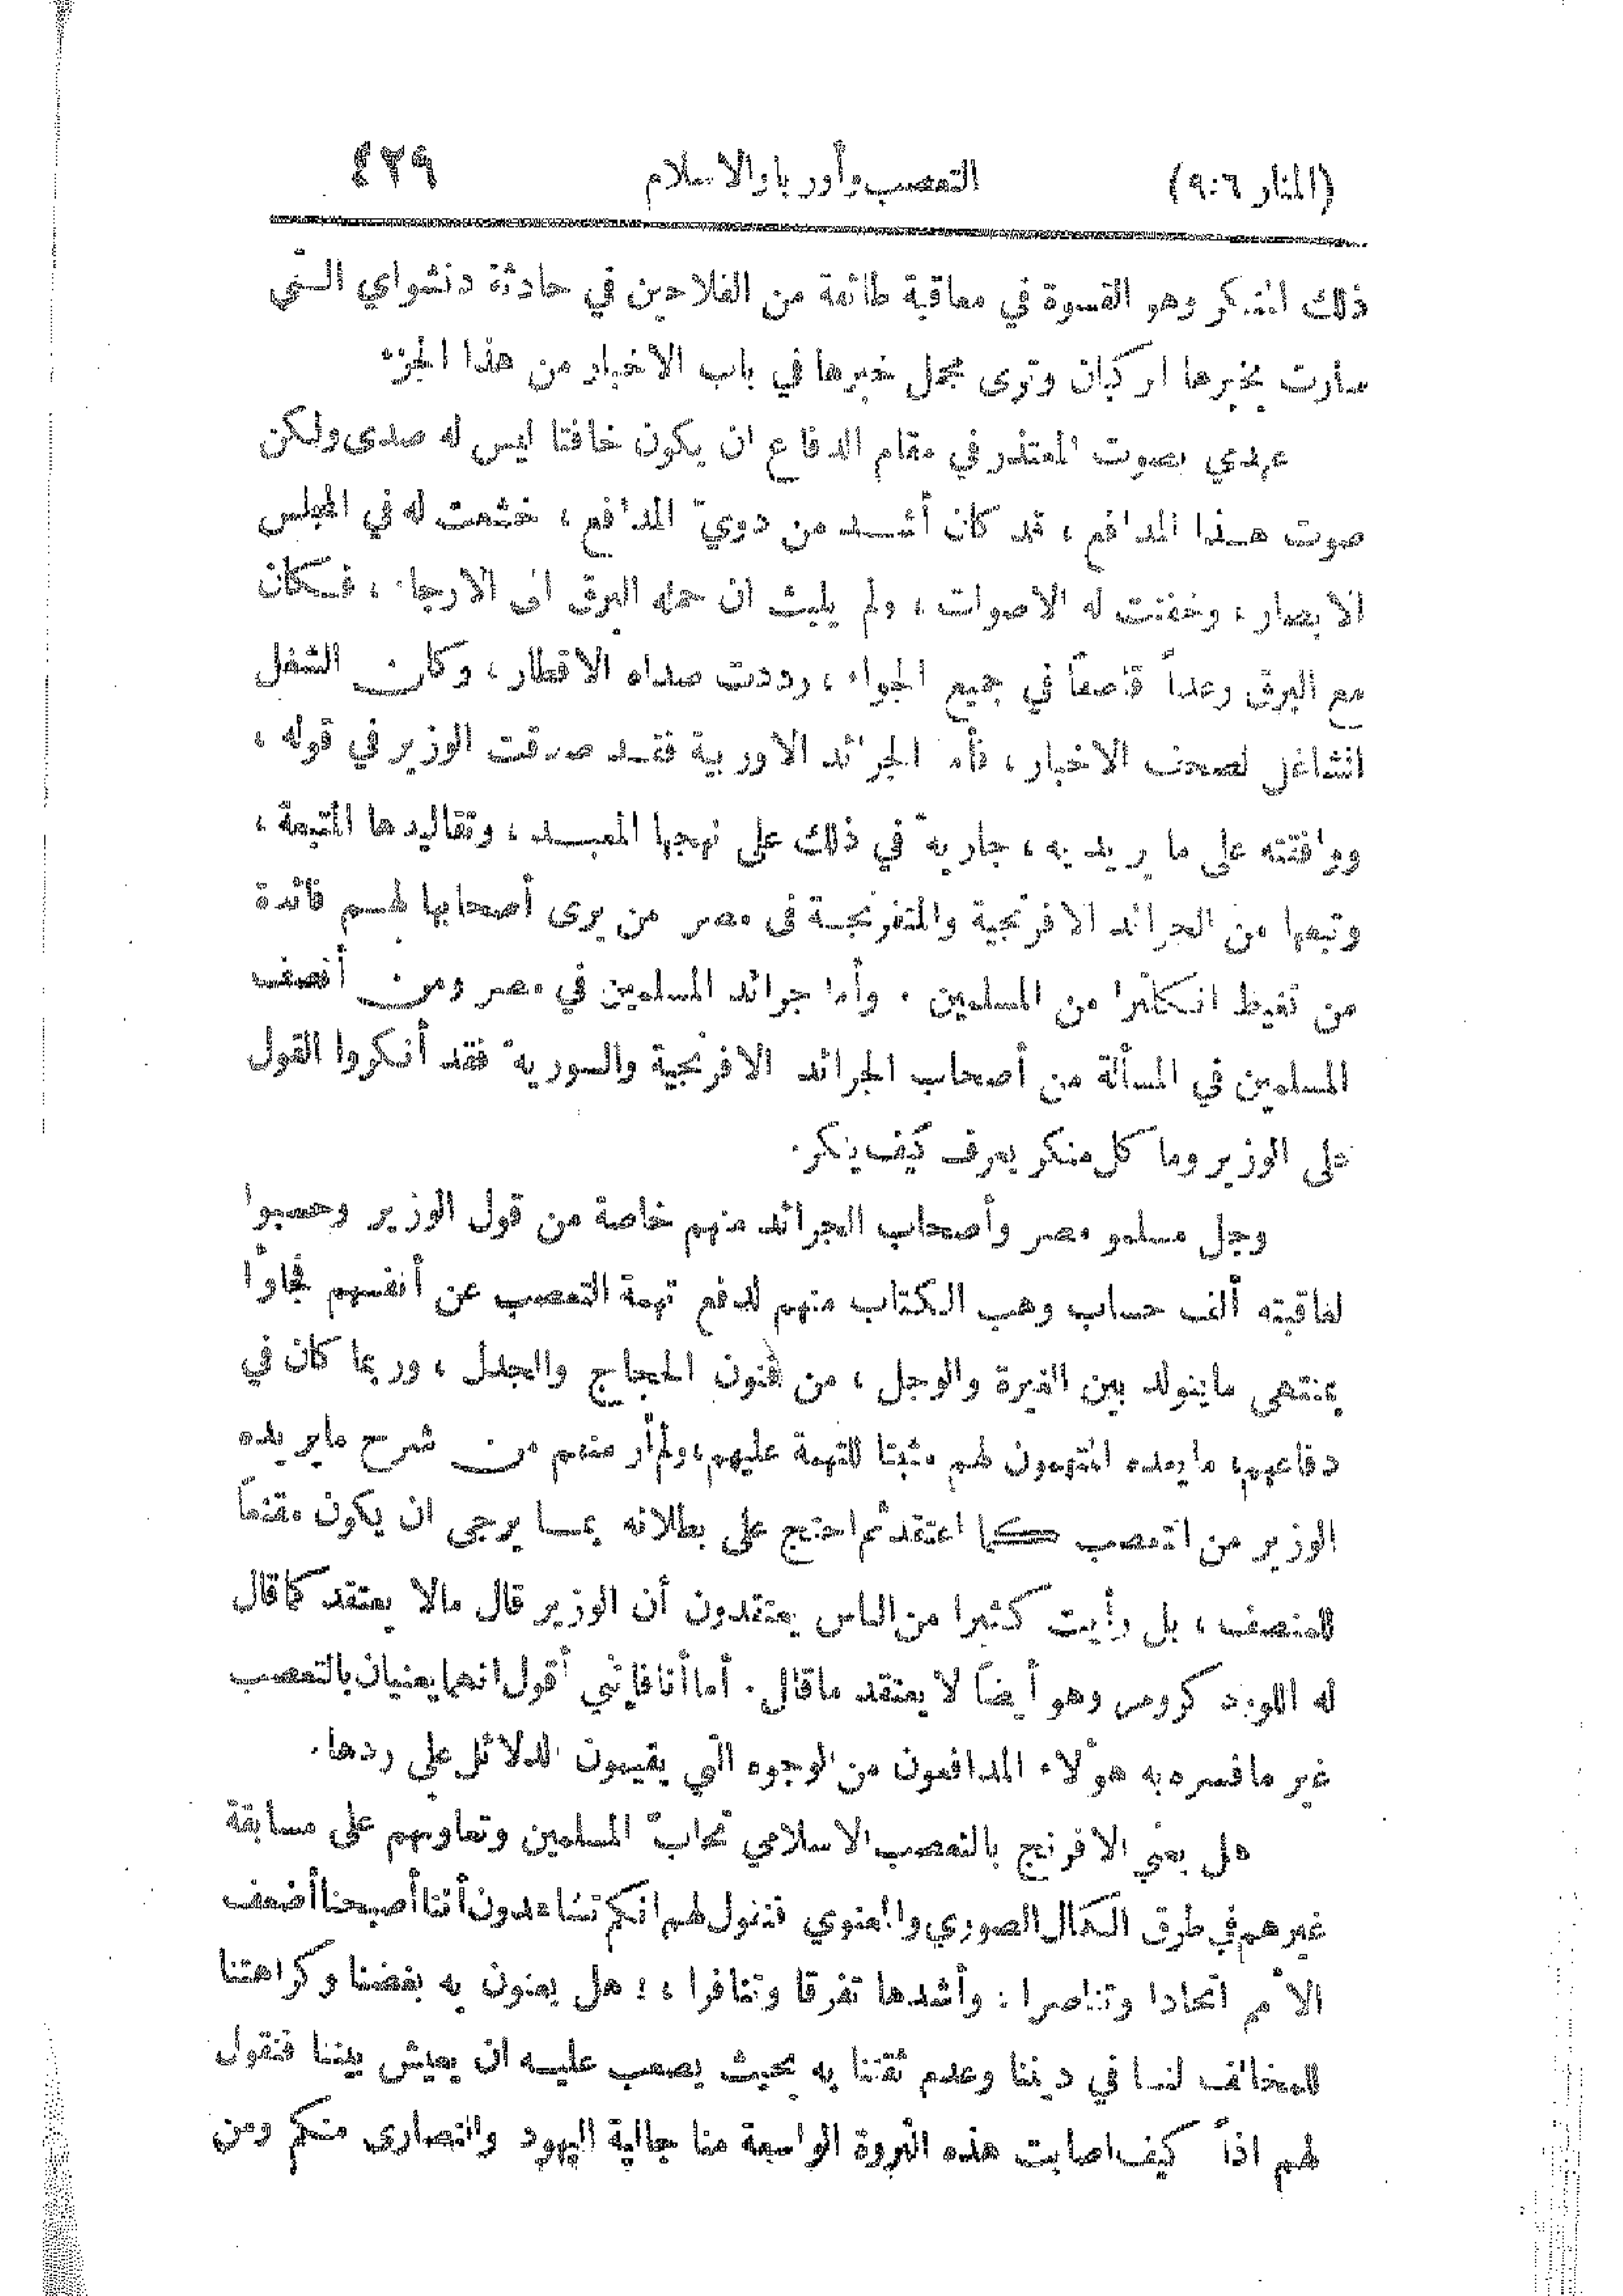 (المنار ٩:٦) التعصب وأوربا والاسلام ٤٢٩
ذلك المنكر وهو القسوة في معاقبة طائفة من الفلاحين في حادثة دنشواي التي
سارت بخبرها الركبان وترى مجمل خبرها في باب الاخبار من هذا الجزء
عهدي بصوت المعتذر في مقام الدفاع ان يكون خافتا ليس له صدى ولكن
صوت هذا المدافع ، قد كان أشد من دويّ المدافع ، خشعت له في المجلس
الابصار ، وخفتت له الاصوات ، ولم يلبث ان حمله البرق الى الارجاء ، فكان
مع البرق رعداً قاصفاً في جميع الجواء ، رددت صداه الاقطار ، وكان الشغل
الشاغل لصحف الاخبار ، فأما الجرائد الاوربية فقد صدقت الوزير في قوله ،
ووافقته على ما يريد به ، جارية في ذلك على نهجها المعبد ، وتقاليدها المتبعة ،
وتبعها من الجرائد الافرنجية والمتفرنجة في مصر من يرى أصحابها لهم فائدة
من تغيظ انكلترا من المسلمين . وأما جرائد المسلمين في مصر ومن أنصف
المسلمين في المسألة من أصحاب الجرائد الافرنجية والسورية فقد أنكروا القول
على الوزير وما كل منكر يعرف كيف ينكر .
وجل مسلمو مصر وأصحاب الجرائد منهم خاصة من قول الوزير وحسبوا
لعاقبته ألف حساب وهب الكتاب منهم لدفع تهمة التعصب عن أنفسهم فجاوا
بمنتهى ما يتولد بين الغيرة والوجل ، من فنون الحجاج والجدل ، وربما كان في
دفاعهم ما يعده المتهمون لهم مثبتا للتهمة عليهم ، ولم أر منهم من شرح ما يريده
الوزير من التعصب كما اعتقد ثم احتج على بطلانه بما يرجى ان يكون مقنعاً
للمنصف ، بل رأيت كثيرا من الناس يعتقدون أن الوزير قال مالا يعتقد كما قال
له اللورد كرومر وهو أيضاً لا يعتقد ماقال . أما أنا فإنني أقول انهما يعنيان بالتعصب
غير ما فسره به هولاء المدافعون من الوجوه التي يقيمون الدلائل على ردها .
هل يعني الافرنج بالتعصب الاسلامي تحابّ المسلمين وتعاونهم على مسابقة
غيرهم في طرق الكمال الصوري والمعنوي فنقول لهم انكم تشاهدون أننا أصبحنا أضعف
الامم اتحادا وتناصرا : وأشدها تفرقا وتنافرا ، ؛ هل يعنون به بغضنا وكراهتنا
للمخالف لنا في ديننا وعدم ثقتنا به بحيث يصعب عليه ان يعيش بيننا فنقول
لهم اذاً كيف اصابت هذه الثروة الواسعة منا جالية اليهود والنصارى منكم ومن